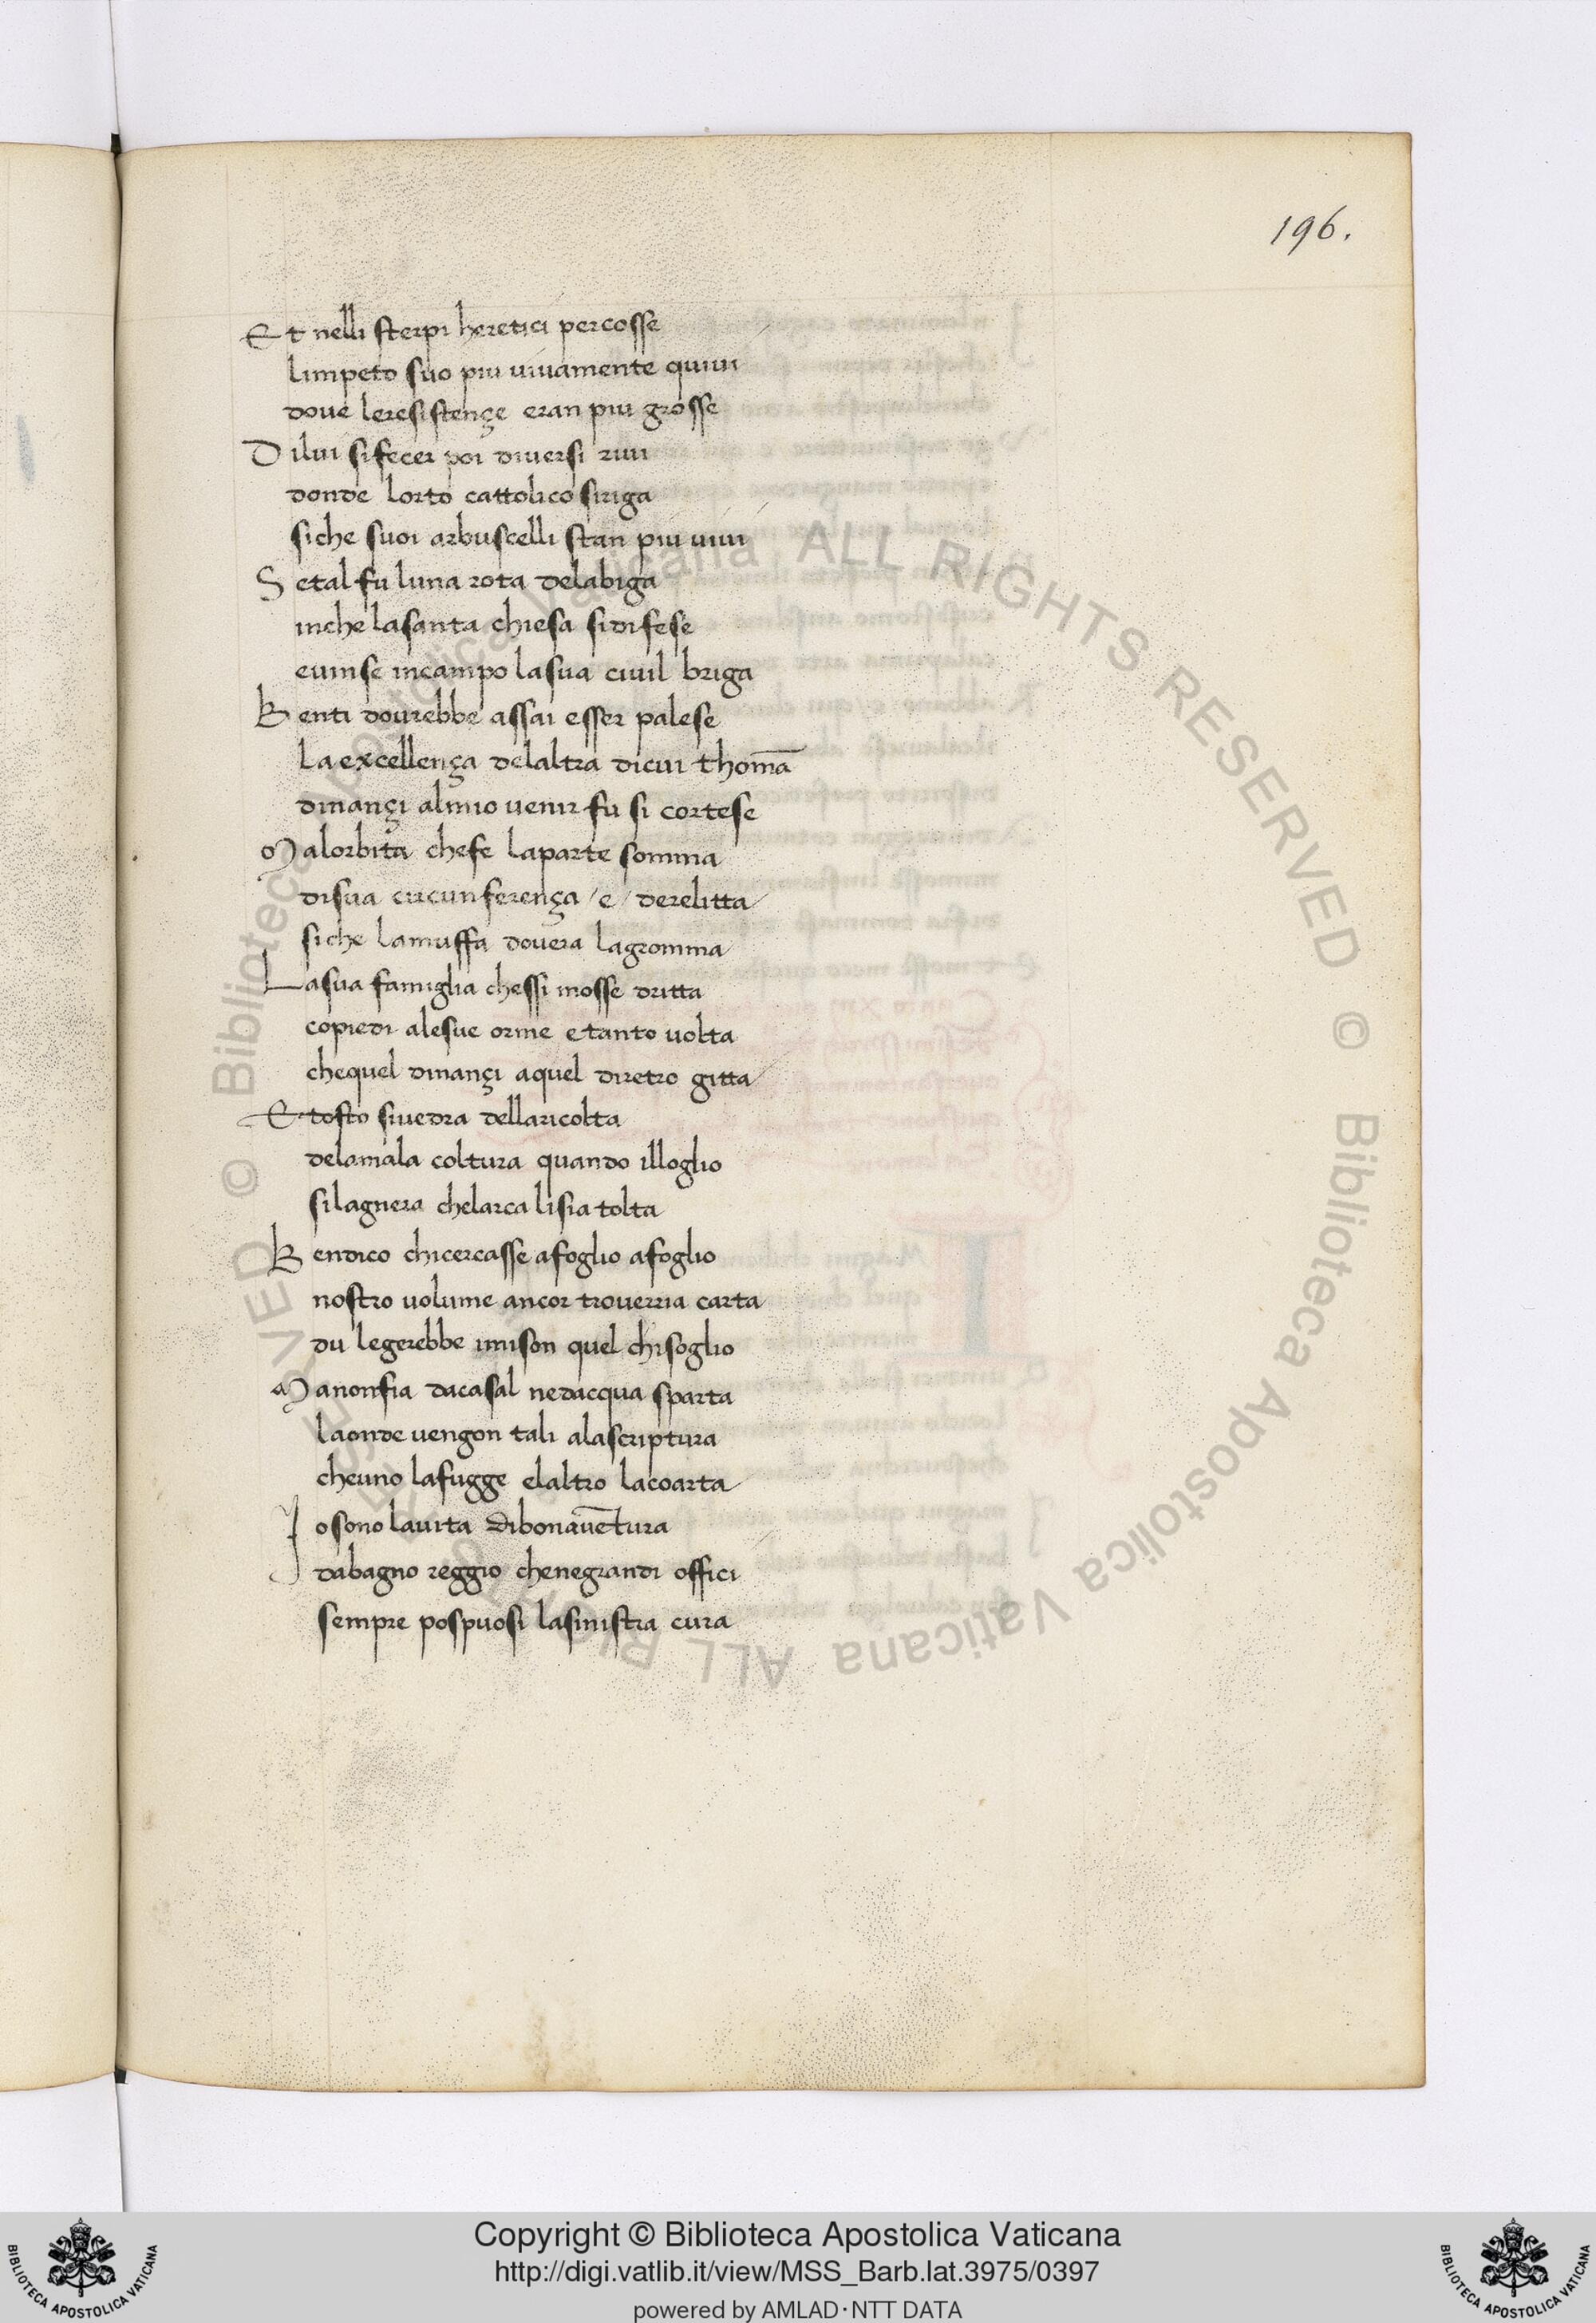 196.
Et nelli sterpi heretici percosse
limpeto suo piu uiuamente quiui
doue leresistençe eran piu grosse
Dilui sifecer poi diuersi riui
donde lorto cattolico siriga
siche suoi arbuscelli stan piu uiui
Setal fu luna rota delabiga
inche lasanta chiesa sidifese
euinse incampo lasua ciuil briga
Benti dourebbe assai esser palese
la excellença delaltra dicui thomā
dinançi almio uenir fu si cortese
Malorbita chefe laparte somma
disua circunferença / e / derelitta
siche lamuffa douera lagromma
Lasua famiglia chessi mosse dritta
copiedi alesue orme etanto uolta
chequel dinançi aquel diretro gitta
Etosto siuedra dellaricolta
delamala coltura quando illoglio
silagnera chelarca lisia tolta
Bendico chicercasse afoglio afoglio
nostro uolume ancor trouerria carta
du legerebbe imison quel chisoglio
Manonfia dacasal nedacqua sparta
laonde uengon tali alascriptura
cheuno lafugge elaltro lacoarta
Iosono lauita dibonauētura
dabagno reggio chenegrandi offici
sempre pospuosi lasinistra cura
© Biblioteca Apostolica Vaticana ALL RIGHTS RESERVED © Biblioteca Apostolica Vaticana ALL RIGHTS RESERVED
Copyright © Biblioteca Apostolica Vaticana
http://digi.vatlib.it/view/MSS_Barb.lat.3975/0397
powered by AMLAD·NTT DATA
BIBLIOTECA APOSTOLICA VATICANA
BIBLIOTECA APOSTOLICA VATICANA